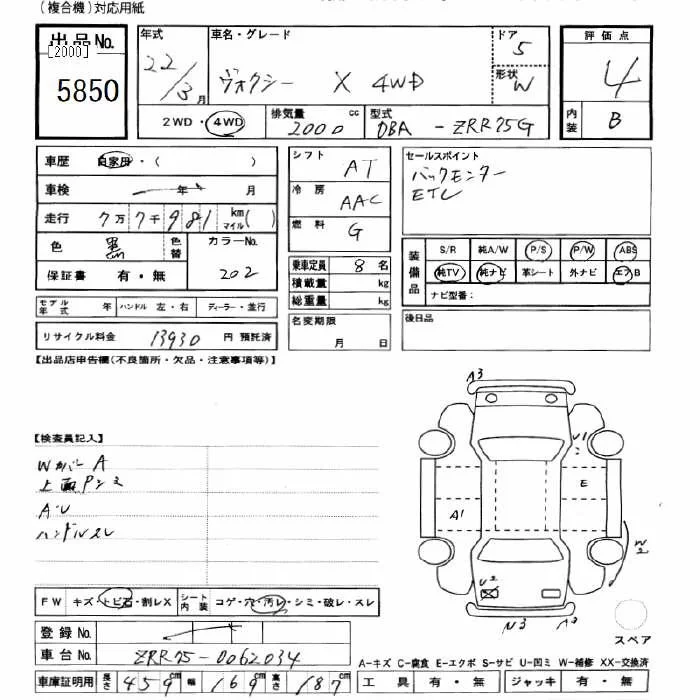 (複合機)対応用紙
出品No.
[2000]
5850
年式
22/3月
車名・グレード
ヴォクシー X 4WD
ドア
5
形状
W
評価点
4
内装
B
2WD・4WD
排気量
2000 cc
型式
DBA-ZRR75G
車歴 自家用・( )
車検 年 月
走行 7万7千981 km マイル( )
色 黒 色替
カラーNo.
202
保証書 有・無
シフト
AT
冷房
AAC
燃料
G
乗車定員 8名
積載量 kg
総重量 kg
セールスポイント
バックモニター
ETC
装備品
S/R 純A/W P/S P/W ABS
純TV 純ナビ 革シート 外ナビ エアB
ナビ型番:
モデル年式 年 ハンドル 左・右 ディーラー・並行
リサイクル料金 13930 円 預託済
名変期限
月 日
後日品
【出品店申告欄(不良箇所・欠品・注意事項等)】
【検査員記入】
WカバーA
上面Pシミ
A・U
ハンドルスレ
A3
U1
E
A1
W2
U2
N3
スペア
FW キズ・トビ石・割レX シート内装 コゲ・穴・汚レ・シミ・破レ・スレ
登録No.
車台No. ZRR75-0062034
車庫証明用 長さ 459cm 幅 169cm 高さ 187cm
A-キズ C-腐食 E-エクボ S-サビ U-凹ミ W-補修 XX-交換済
工具 有・無 ジャッキ 有・無